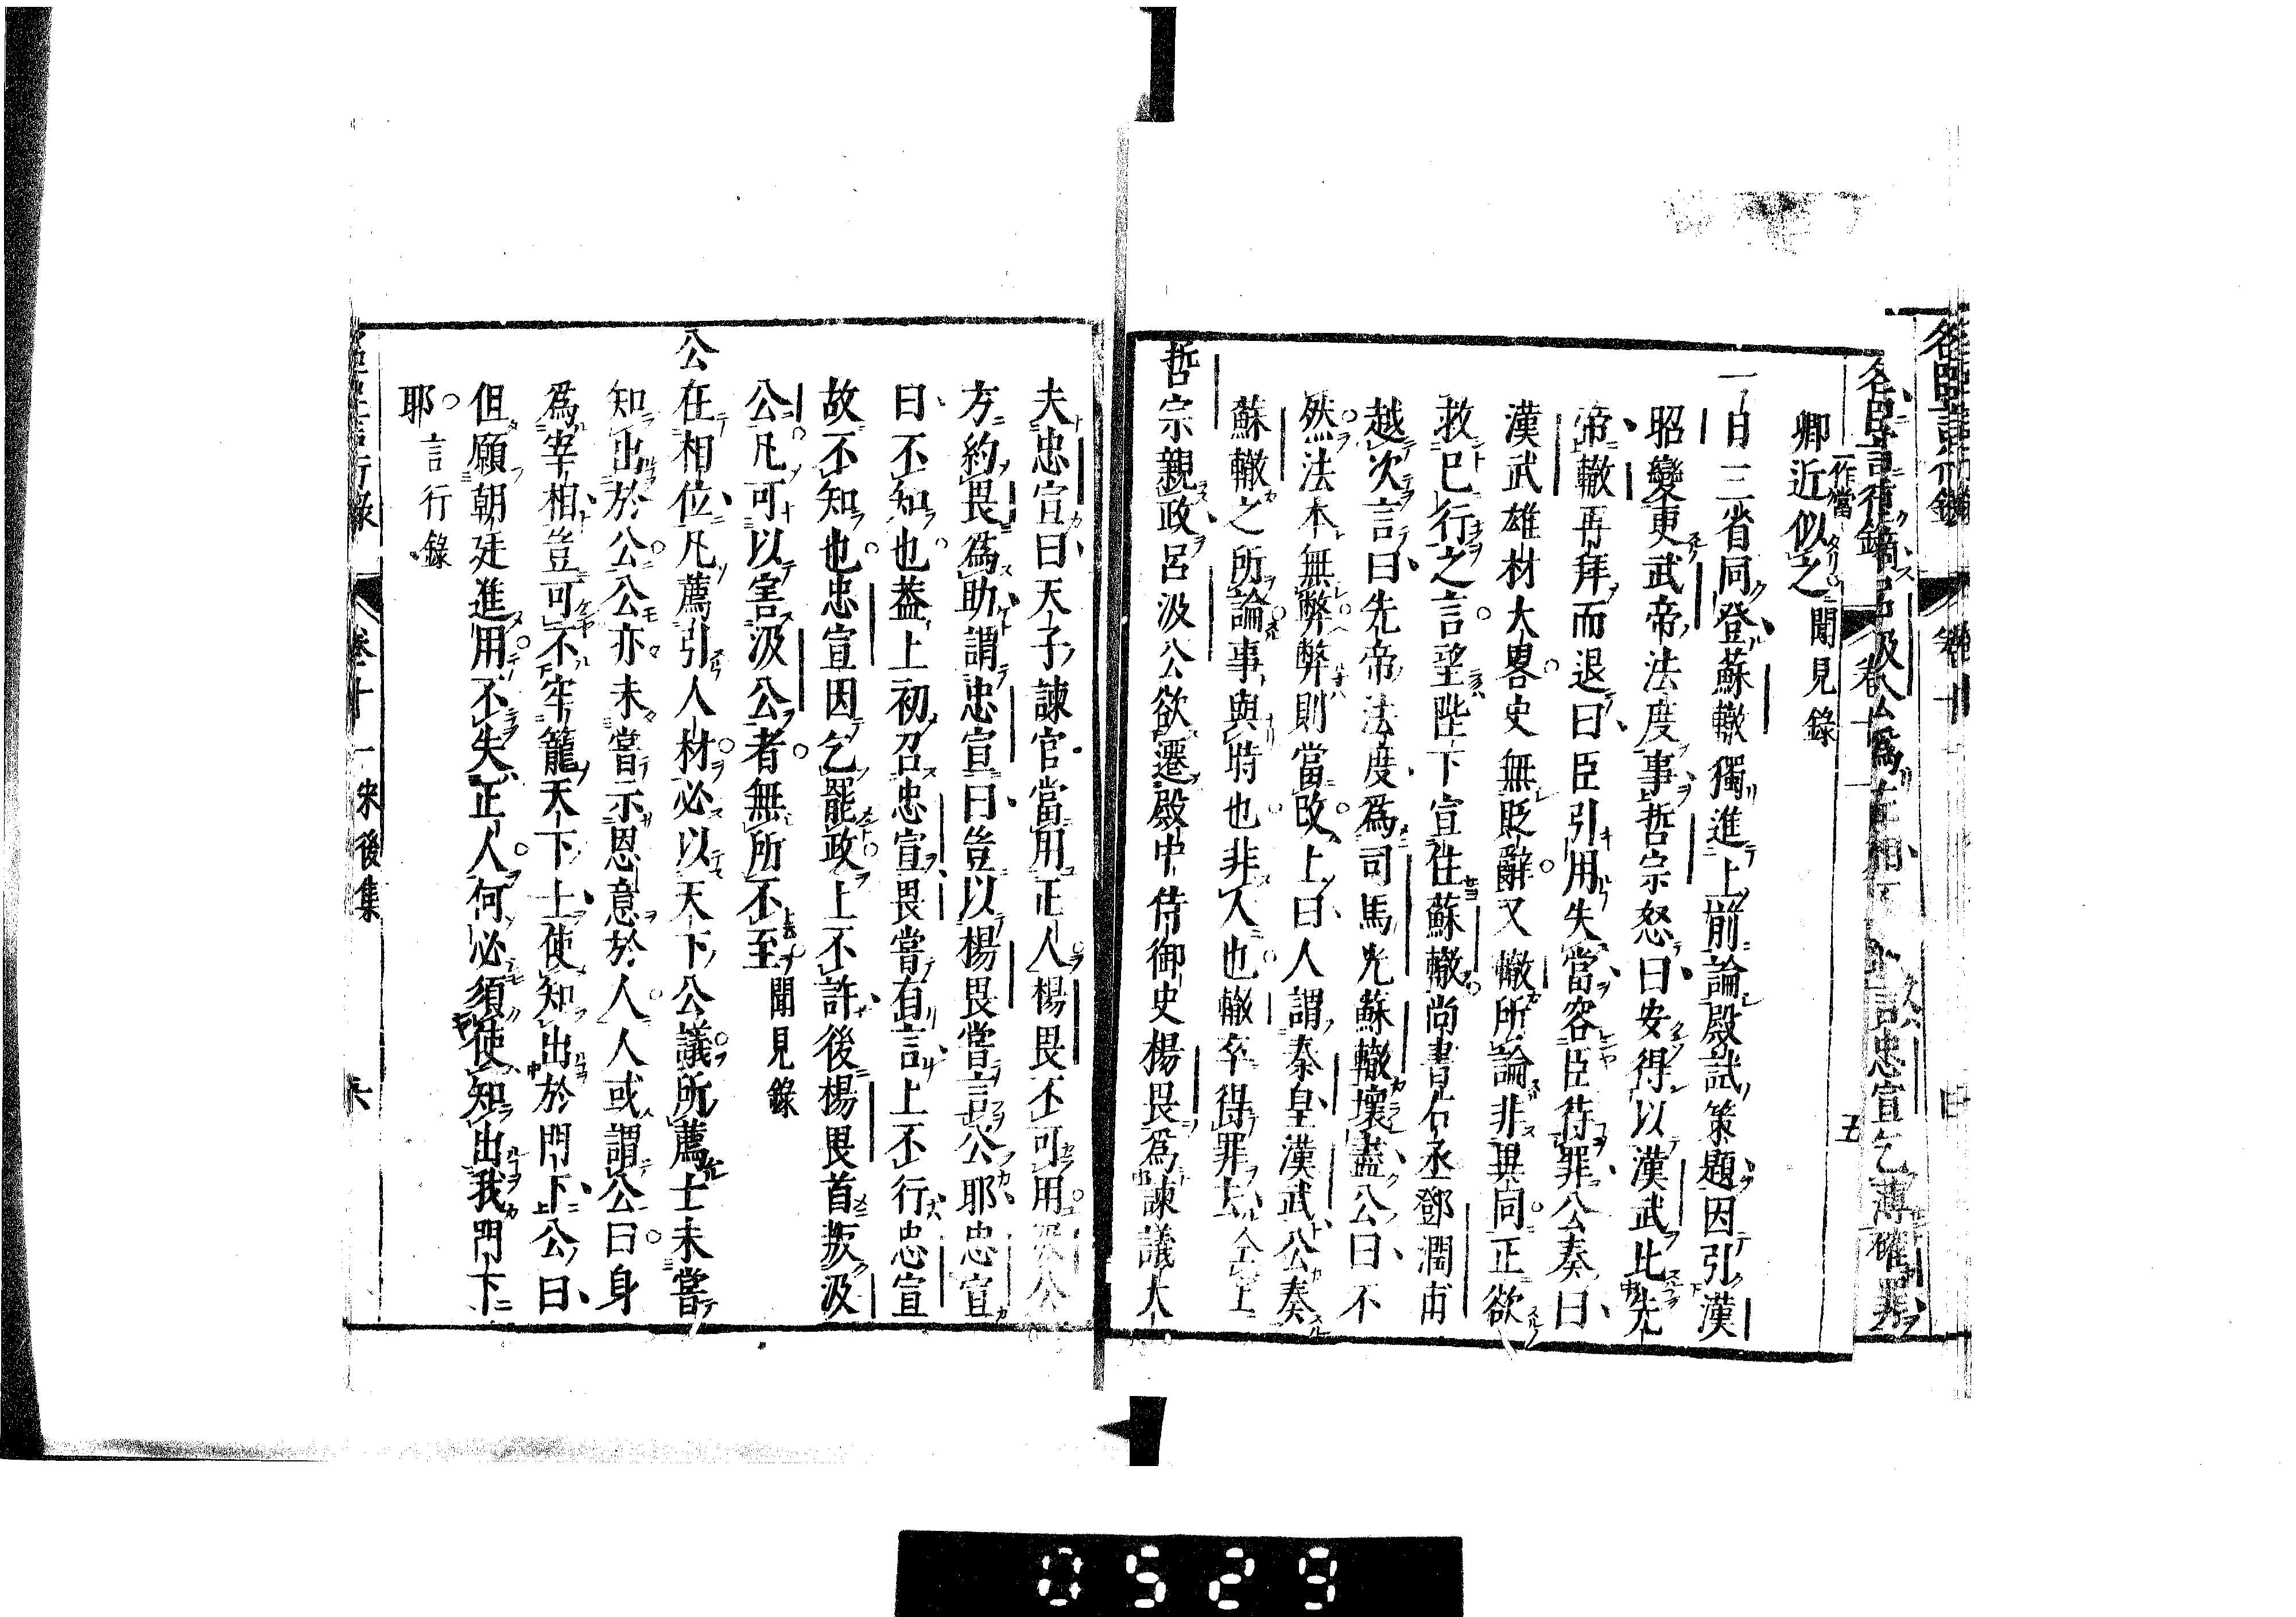 卿近似之 聞見錄
一作當
一日三省同登蘇轍獨進上前論殿試策題因引漢
昭變更武帝法度事哲宗怒曰安得以漢武比先
帝轍再拜而退曰臣引用失當容臣待罪公奏曰
漢武雄材大畧史無貶辭又轍所論非異同正欲
救已行之言望陛下宣徃蘇轍尚書右丞鄧潤甫
越次言曰先帝法度爲司馬光蘇轍壞盡公曰不
然法本無弊弊則當改上曰人謂秦皇漢武公奏
蘇轍之所論事與時也非人也轍卒得罪去
哲宗親政呂汲公欲遷殿中侍御史楊畏爲諫議大
夫忠宣曰天子諫官當用正人楊畏不可用汲公
方約畏爲助謂忠宣曰豈以楊畏嘗言公耶忠宣
曰不知也葢上初召忠宣畏嘗有言上不行忠宣
故不知也忠宣因乞罷政上不許後楊畏首叛汲
公凡可以害汲公者無所不至 聞見錄
公在相位凡薦引人材必以天下公議所薦士未嘗
知出於公公亦未嘗示恩意於人人或謂公曰身
爲宰相豈可不牢籠天下士使知出於門下公曰
但願朝廷進用不失正人何必須使知出我門下
耶 言行錄
卷十一 宋後集
六